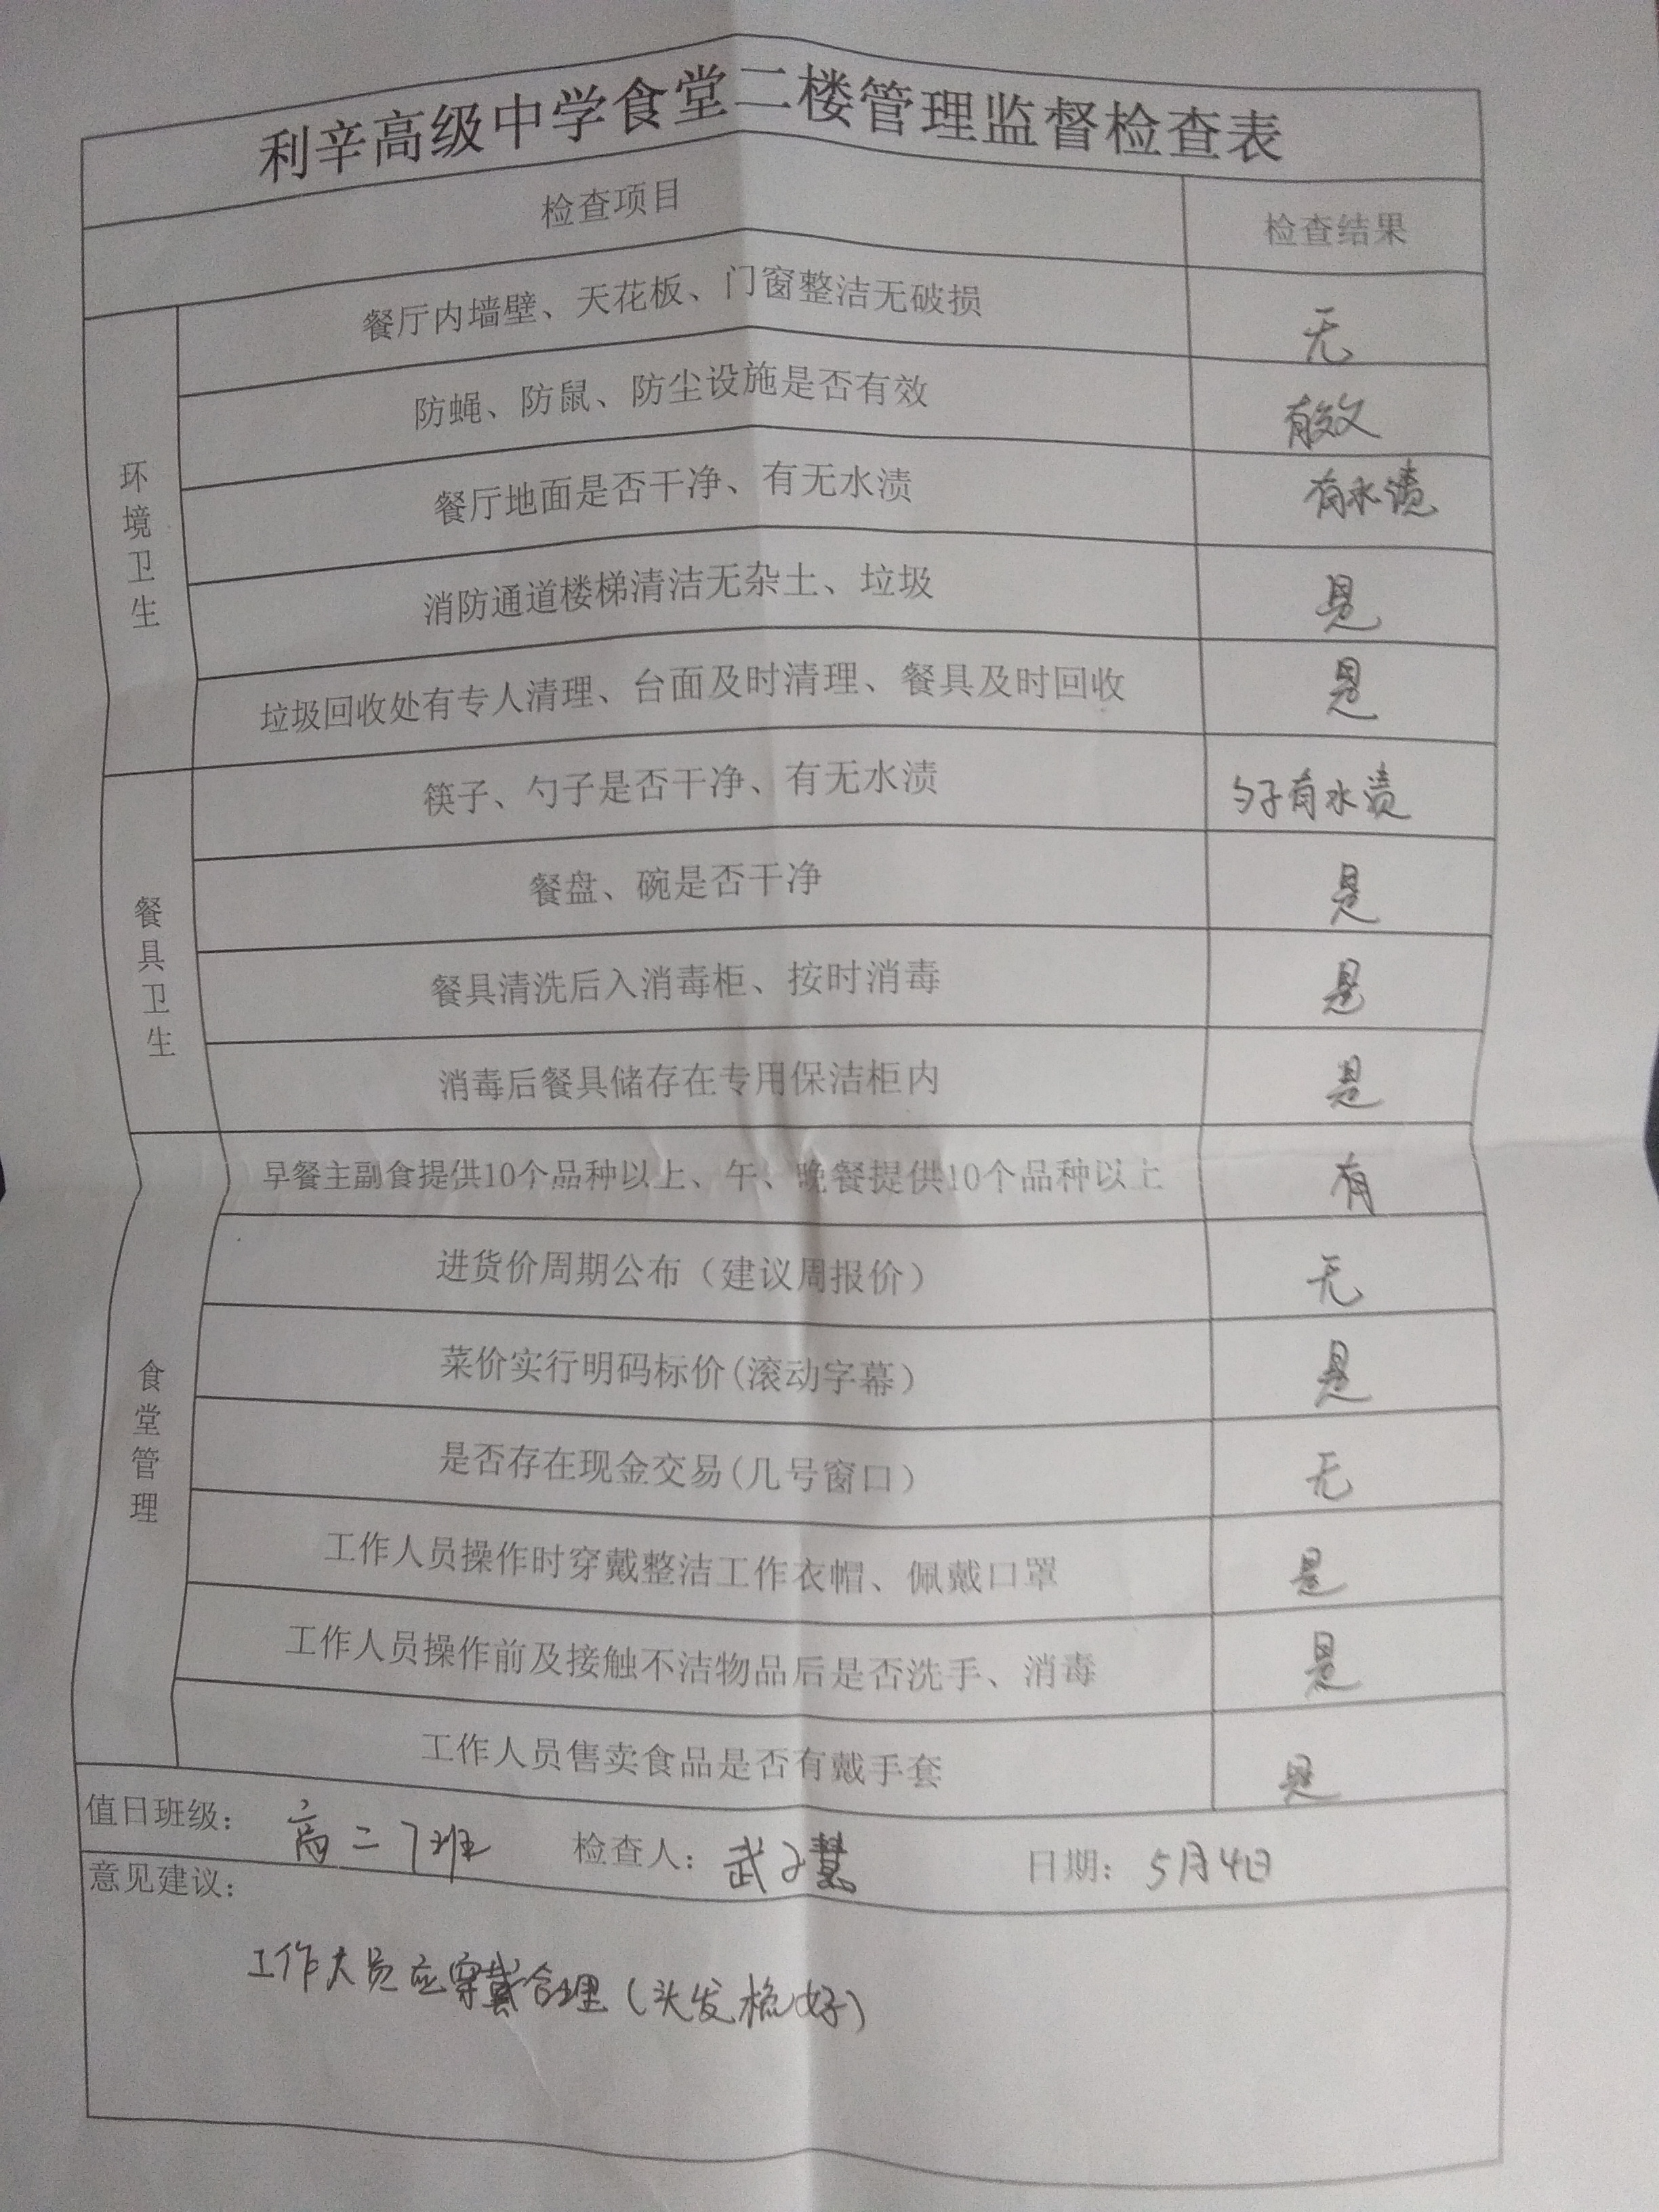 利辛高级中学食堂二楼管理监督检查表
检查项目 检查结果
环境卫生
餐厅内墙壁、天花板、门窗整洁无破损 无
防蝇、防鼠、防尘设施是否有效 有效
餐厅地面是否干净、有无水渍 有水渍
消防通道楼梯清洁无杂土、垃圾 是
垃圾回收处有专人清理、台面及时清理、餐具及时回收 是
餐具卫生
筷子、勺子是否干净、有无水渍 勺子有水渍
餐盘、碗是否干净 是
餐具清洗后入消毒柜、按时消毒 是
消毒后餐具储存在专用保洁柜内 是
食堂管理
早餐主副食提供10个品种以上、午、晚餐提供10个品种以上 有
进货价周期公布（建议周报价） 无
菜价实行明码标价(滚动字幕） 是
是否存在现金交易(几号窗口） 无
工作人员操作时穿戴整洁工作衣帽、佩戴口罩 是
工作人员操作前及接触不洁物品后是否洗手、消毒 是
工作人员售卖食品是否有戴手套 是
值日班级：高二7班 检查人：武子慧 日期：5月4日
意见建议：
工作人员应穿戴合理（头发梳好）